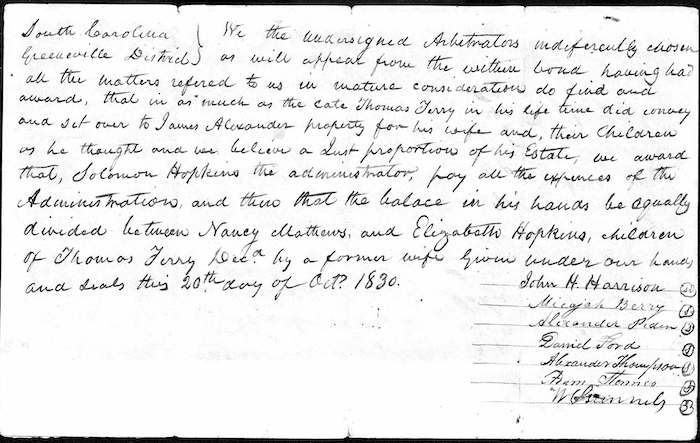 South Carolina } We the undersigned Arbetrators indifercently chosen
Greeneville District } as will appear from the within bond having had
all the matters refered to us in mature consideration do find and
award, that in as much as the late Thomas Terry in his life time did convey
and set over to James Alexander property for his wife and, their Children
as he thought and we believe a Just proportion of his Estate, we award
that, Solomon Hopkins the administrator, pay all the expences of the
Administration, and then that the balace in his hands be equally
divided between Nancy Mathews, and Elizabeth Hopkins, children
of Thomas Terry Decd by a former wife Given under our hands
and seals this 20th day of Octr 1830.
John H. Harrison
Micajah Berry
Alexander Peden
Daniel Ford
Alexander Thompson
Adam
W